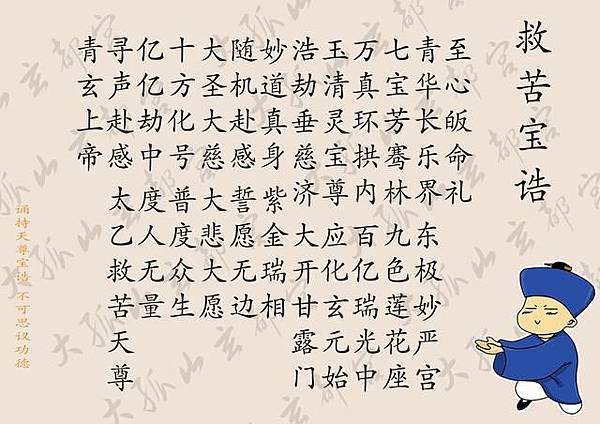 救苦宝诰
至心皈命礼
青华长乐界东极妙严宫
七宝芳骞林九色莲花座
万真环拱内百亿瑞光中
玉清灵宝尊应化玄元始
浩劫垂慈济大开甘露门
妙道真身紫金瑞相
随机赴感誓愿无边
大圣大慈大悲大愿
十方化号普度众生
亿亿劫中度人无量
寻声赴感太乙救苦天尊
青玄上帝
诵持天尊宝诰 不可思议功德
大孤山玄都宫